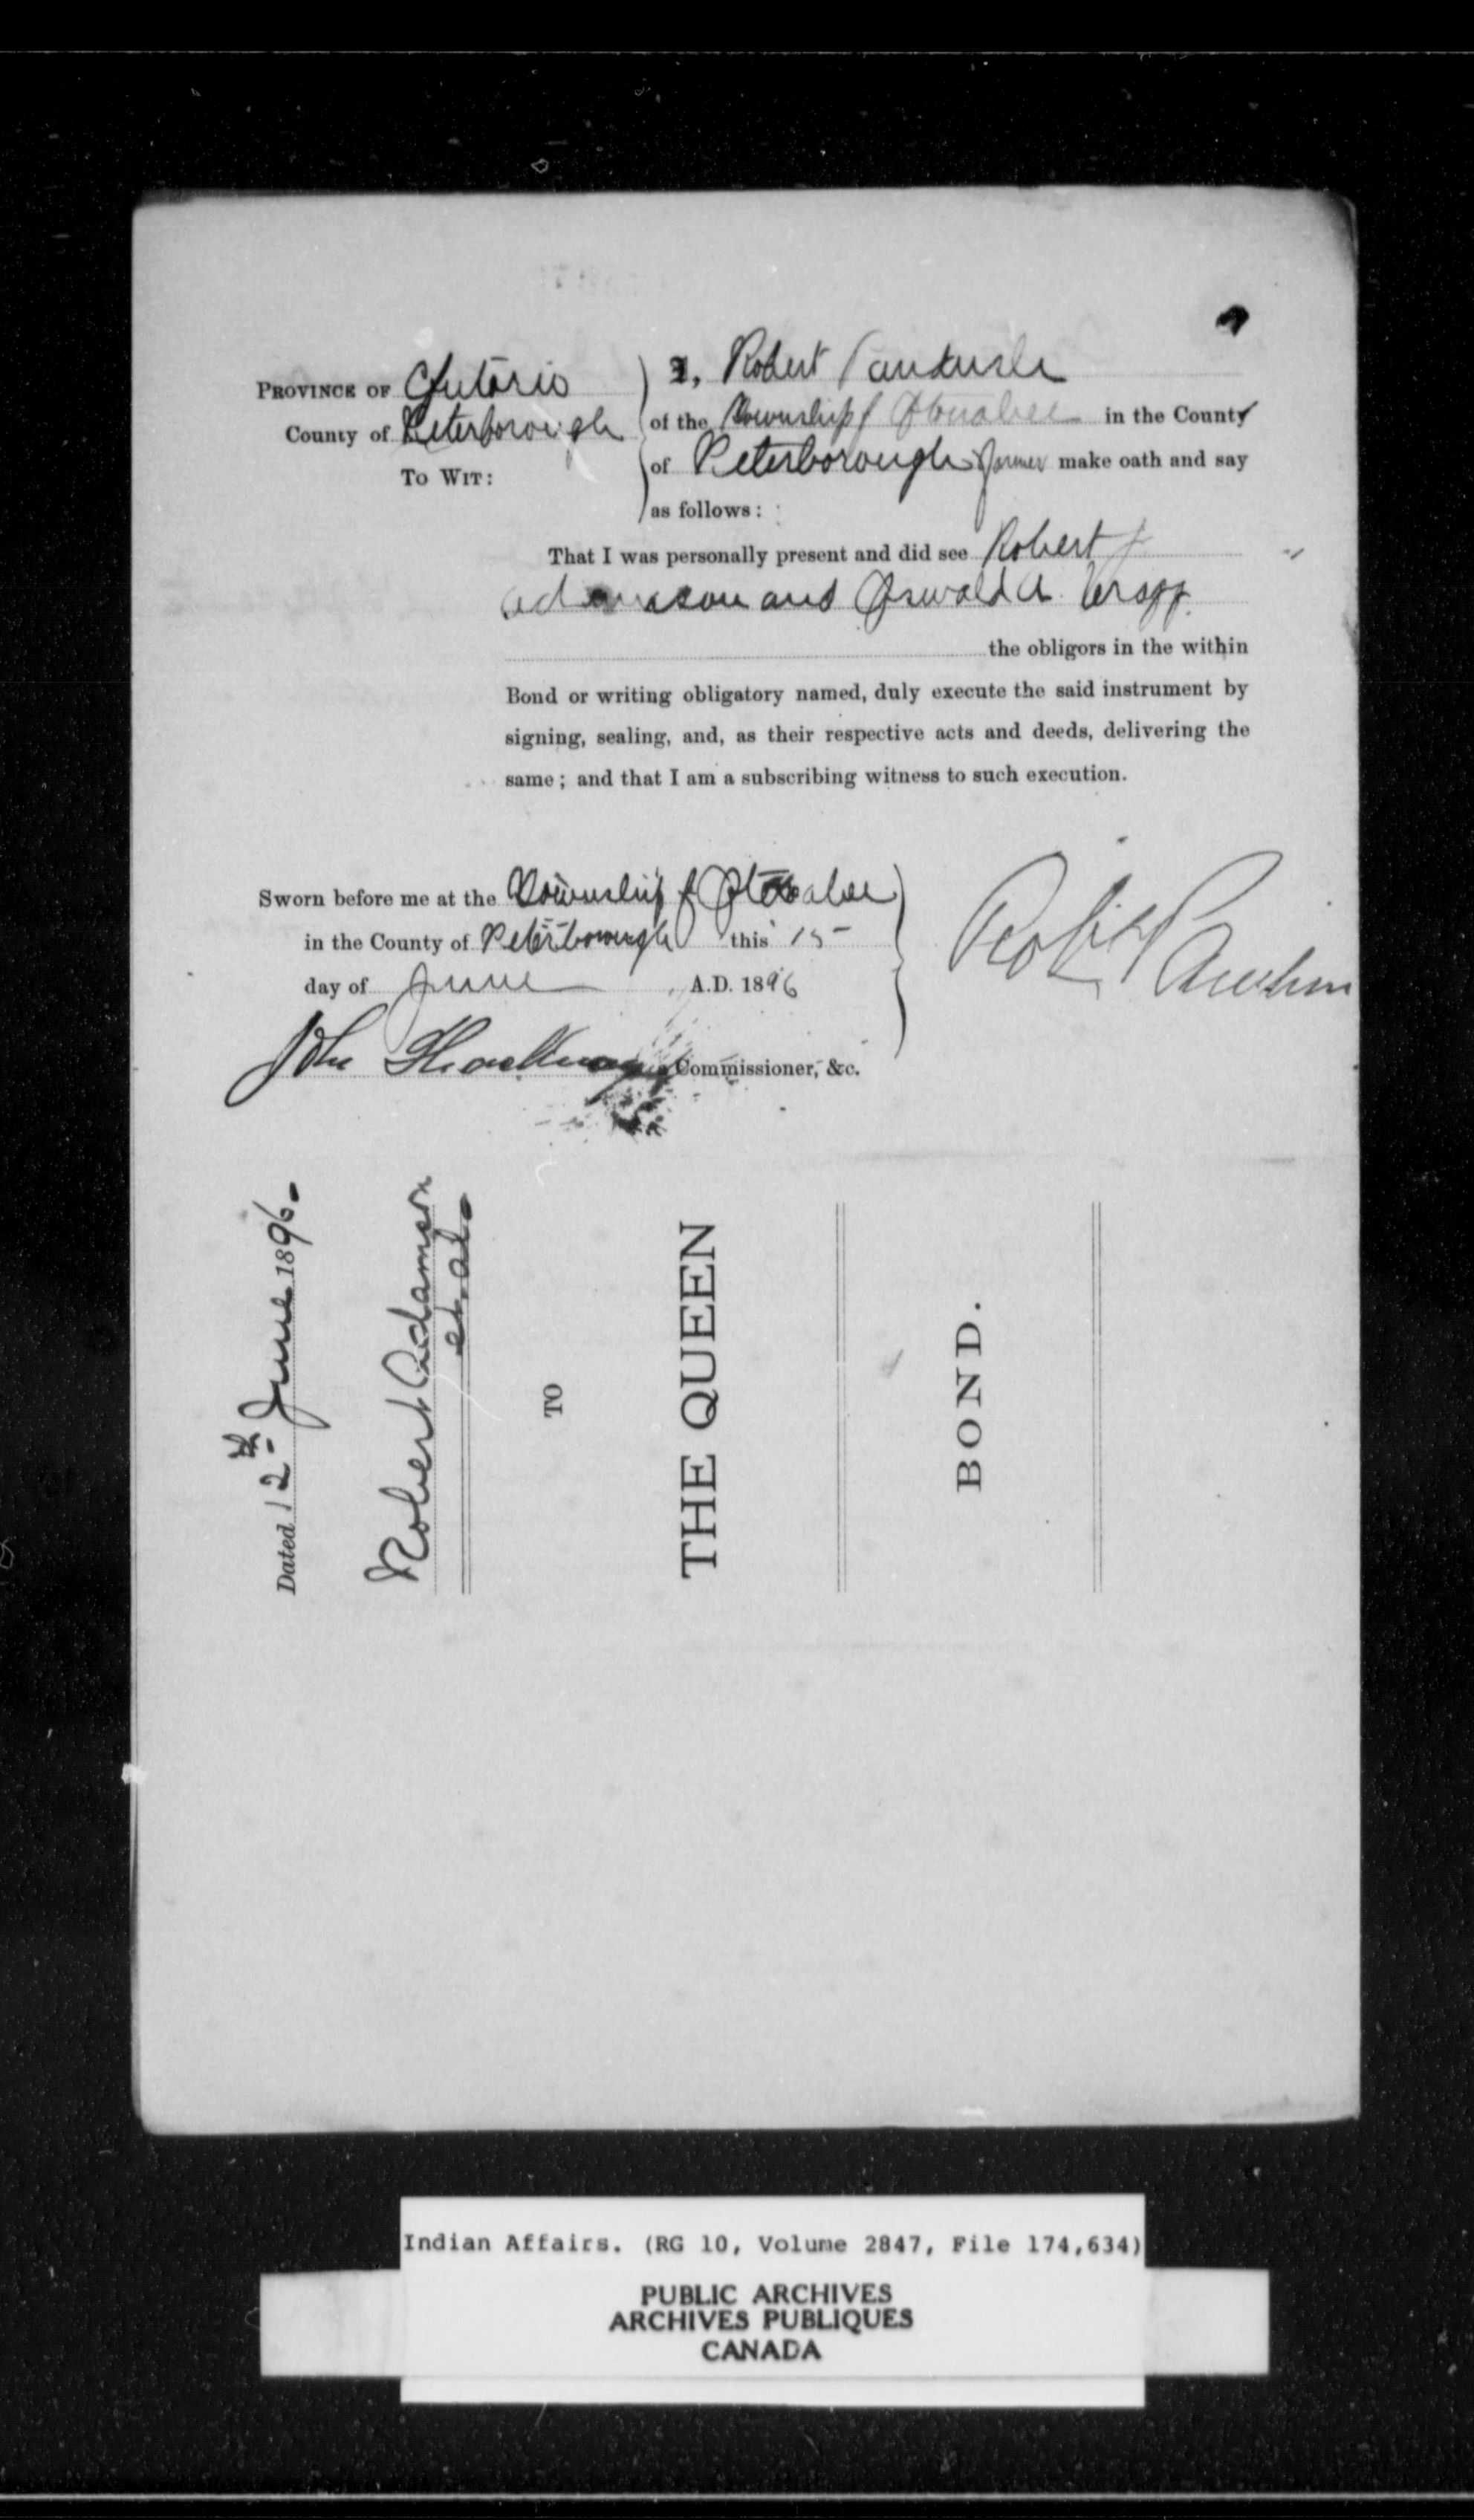 PROVINCE OF Ontario
County of Peterborough
TO WIT:
I, Robert
of the Township of Otonabee in the County
of Peterborough farmer make oath and say
as follows:
That I was personally present and did see Robert
Adamson and Oswald A.
the obligors in the within
Bond or writing obligatory named, duly execute the said instrument by
signing, sealing, and, as their respective acts and deeds, delivering the
same; and that I am a subscribing witness to such execution.
Sworn before me at the Township of Otonabee
in the County of Peterborough this 15
day of June A.D. 1896
John Commissioner, &c.
Robt
Dated 12th June 1896.
Robert Adamson
et al.
TO
THE QUEEN
BOND.
Indian Affairs. (RG 10, Volume 2847, File 174,634)
PUBLIC ARCHIVES
ARCHIVES PUBLIQUES
CANADA